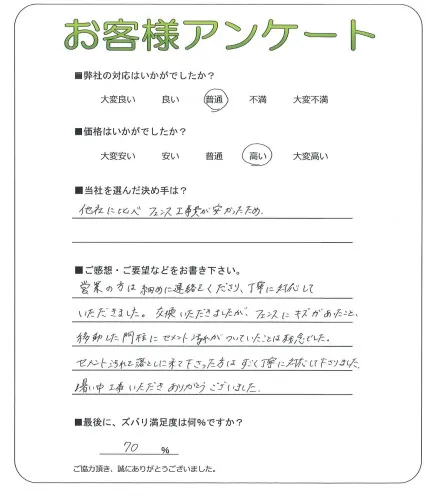 お客様アンケート
■弊社の対応はいかがでしたか?
大変良い 良い 普通 不満 大変不満
■価格はいかがでしたか?
大変安い 安い 普通 高い 大変高い
■当社を選んだ決め手は?
他社に比べ フェンス工事費が安かったため.
■ご感想・ご要望などをお書き下さい。
営業の方は細めに連絡をくださり、丁寧に対応して
いただきました。交換いただきましたが、フェンスにキズがあったこと、
移動した門柱にセメント汚れがついていたことは残念でした。
セメント汚れを落としに来て下さった方はすごく丁寧に対応して下さりました.
暑い中工事いただきありがとうございました.
■最後に、ズバリ満足度は何%ですか?
70 %
ご協力頂き、誠にありがとうございました。